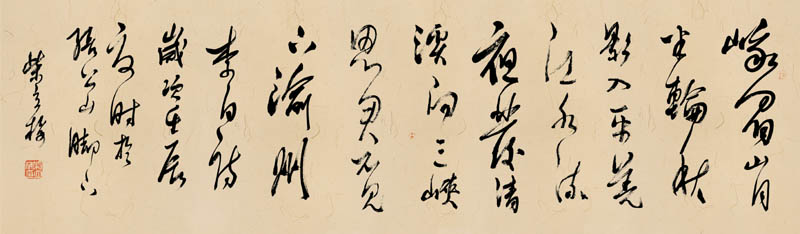 峨眉山月
半輪秋
影入平羌
江水流
夜發清
溪向三峽
思君不見
下渝州
李白詩
歲次壬辰
夏時於
山腳下